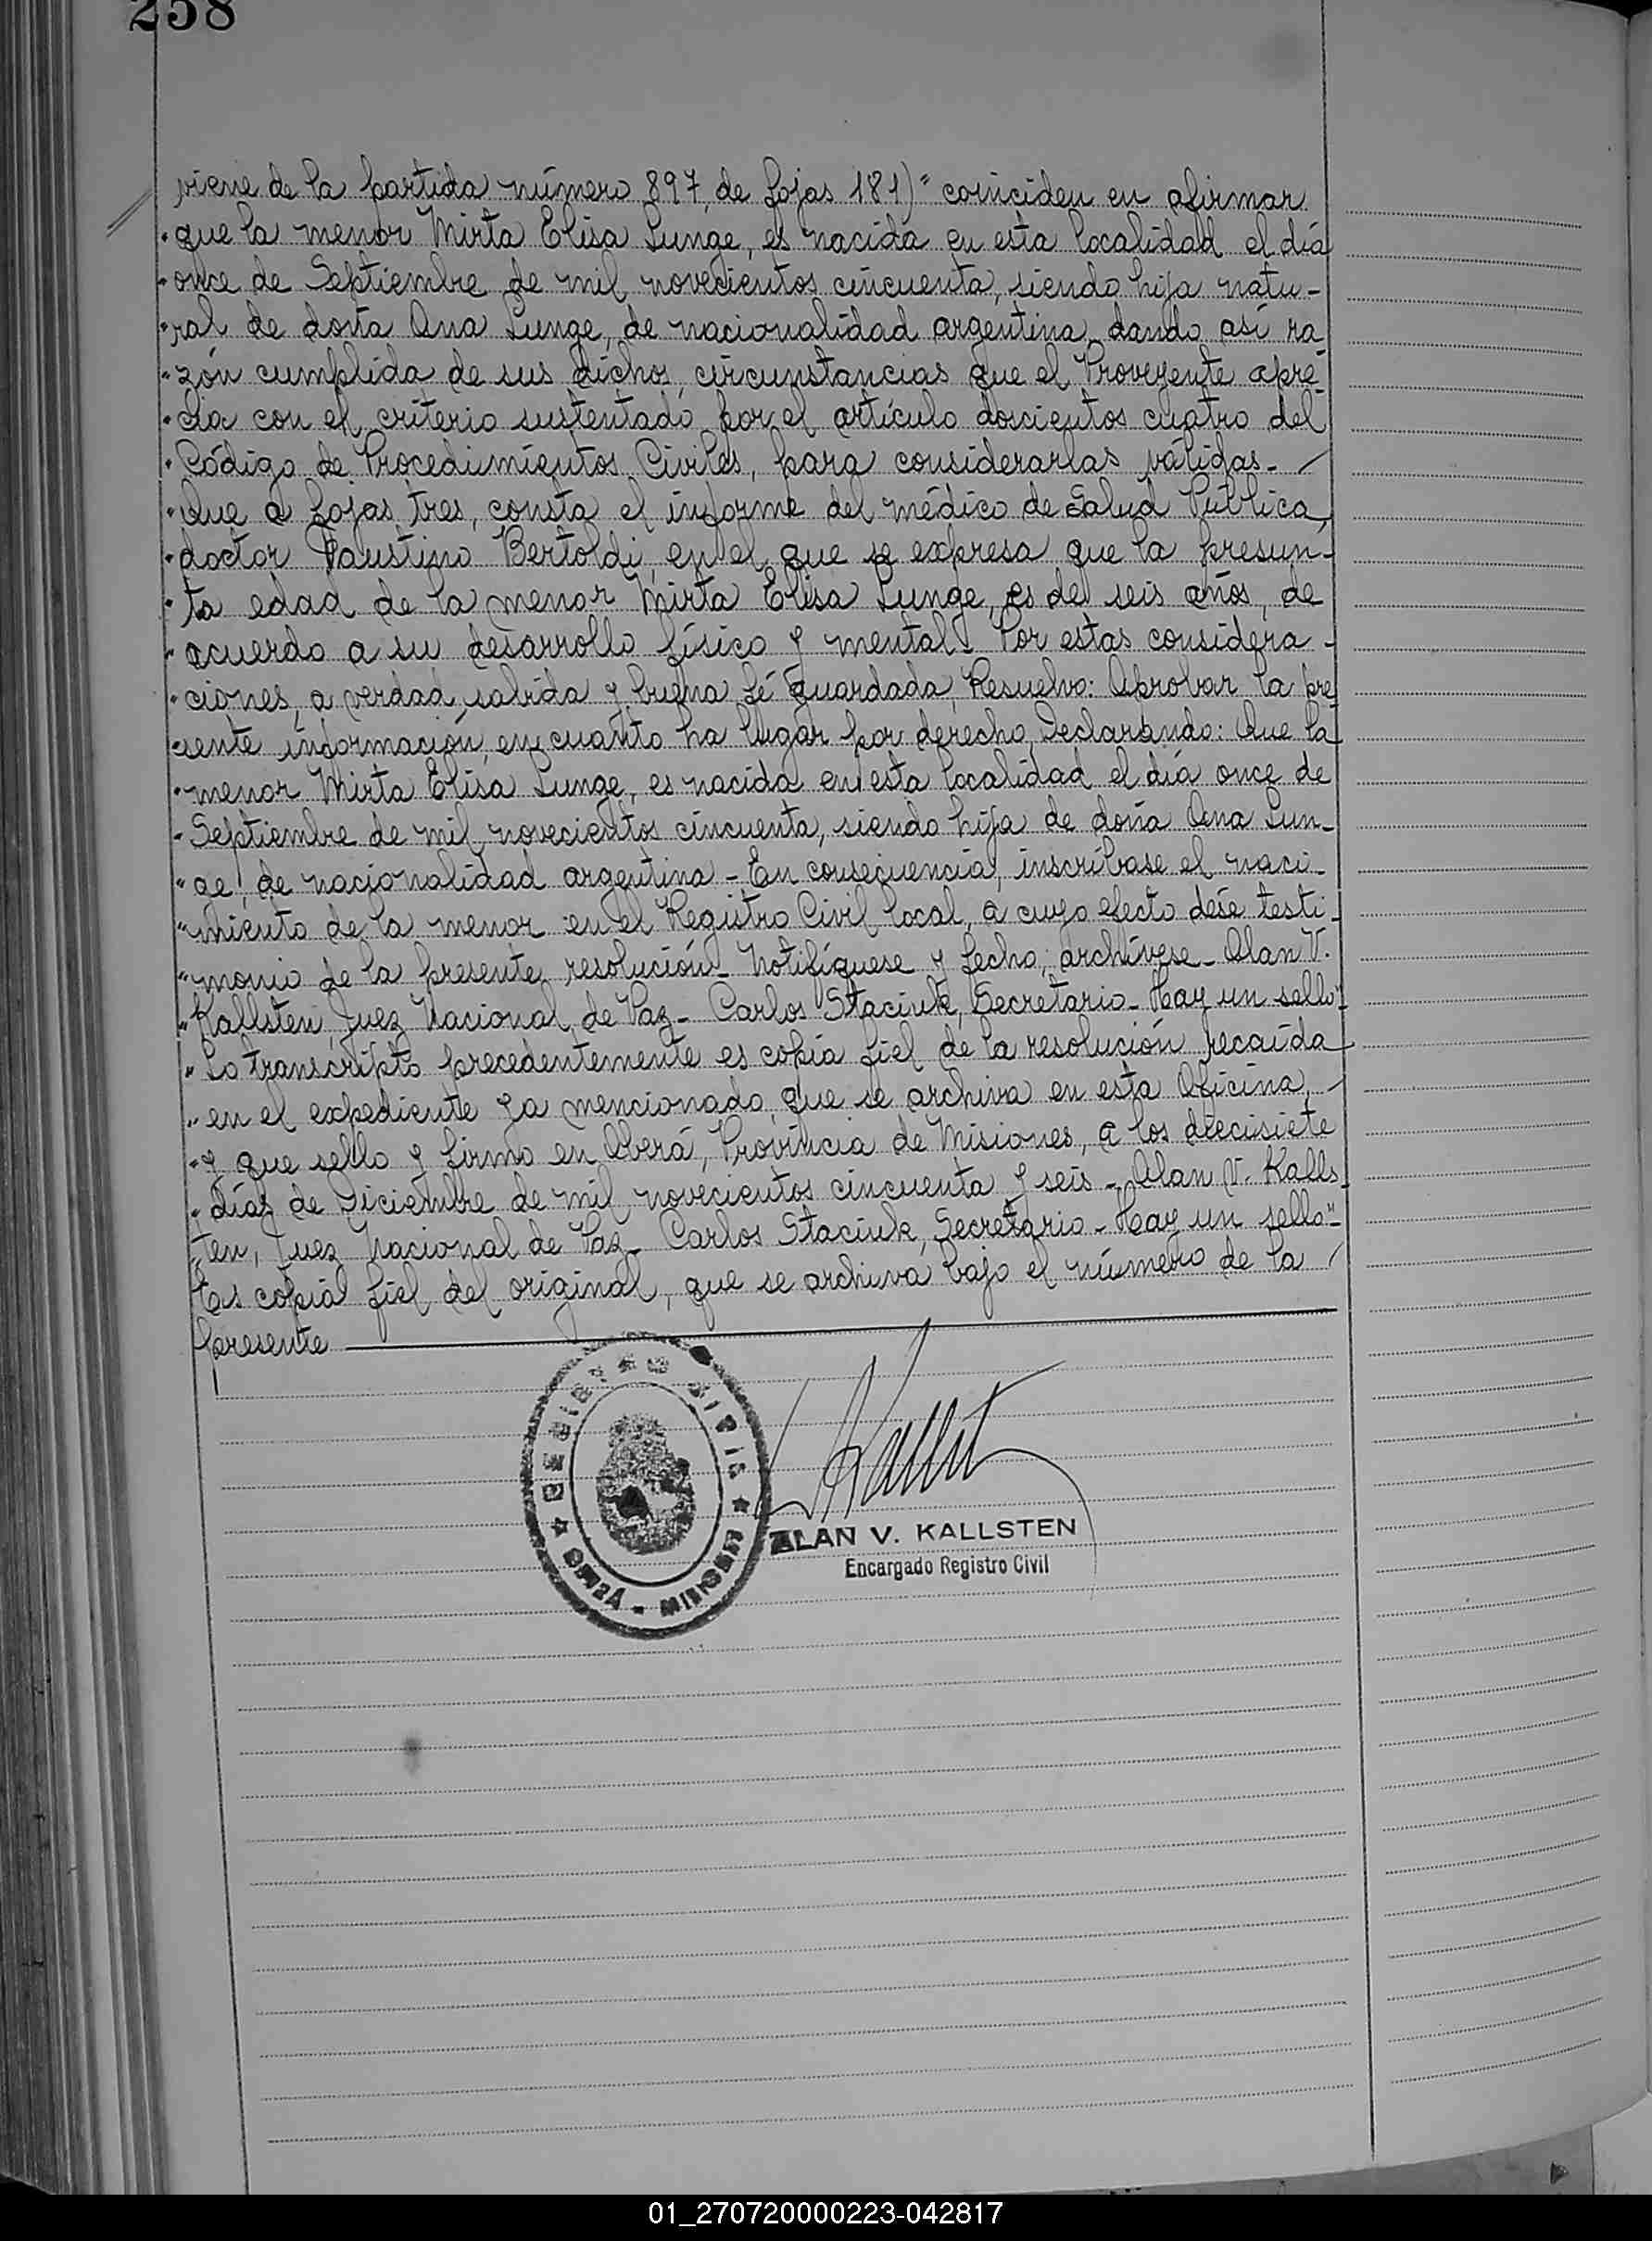 258
viene de la partida número 897, de fojas 181)" coinciden en afirmar
"que la menor Mirta Elisa Lunge, es nacida en esta localidad el día
"once de Septiembre de mil novecientos cincuenta, siendo hija natu-
"ral de doña Ana Lunge, de nacionalidad argentina, dando así ra
"zón cumplida de sus dichos, circunstancias que el Proveyente apre-
"cia con el criterio sustentado por el artículo doscientos cuatro del
"Código de Procedimientos Civiles, para considerarlas válidas.-
"Que a fojas tres, consta el informe del médico de Salud Pública,
"doctor Faustino Bertoldi, en el que se expresa que la presun-
"ta edad de la menor Mirta Elisa Lunge, es de seis años, de
"acuerdo a su desarrollo físico y mental. Por estas considera-
"ciones, a verdad sabida y buena fé guardada, Resuelvo: Aprobar la pre
"sente información, en cuanto ha lugar por derecho, Declarando: Que la
"menor Mirta Elisa Lunge, es nacida en esta localidad el día once de
"Septiembre de mil novecientos cincuenta, siendo hija de doña Ana Lun-
"ge, de nacionalidad argentina - En consecuencia, inscríbase el naci-
"miento de la menor en el Registro Civil local, a cuyo efecto dése testi-
"monio de la presente resolución - Notifíquese y fecho, archívese - Alan V.
"Kallsten, Juez Nacional de Paz - Carlos Staciuk, Secretario - Hay un sello"-
"Lo transcripto precedentemente es copia fiel de la resolución recaída
"en el expediente ya mencionado, que se archiva en esta Oficina,
"y que sello y firmo en Oberá, Provincia de Misiones, a los diecisiete
"días de Diciembre de mil novecientos cincuenta y seis - Alan V. Kalls-
"ten, Juez Nacional de Paz - Carlos Staciuk, Secretario - Hay un sello"-
Es copia fiel del original, que se archiva bajo el número de la
presente
REGISTRO CIVIL
OBERÁ - MISIONES
ALAN V. KALLSTEN
Encargado Registro Civil
01_270720000223-042817